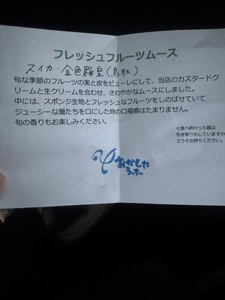 フレッシュフルーツムース
スイカ・金色羅皇(鳥取)
旬な季節のフルーツの実と皮をピューレにして、当店のカスタードク
リームと生クリームを合わせ、さわやかなムースにしました。
中には、スポンジ生地とフレッシュなフルーツをしのばせていて
ジューシーな層たちを口にした時の口福感はたまりません。
旬の香りもお楽しみください。
※食べ終わった器は
引き取りもしていますので
どうぞお持ちください。
おかした